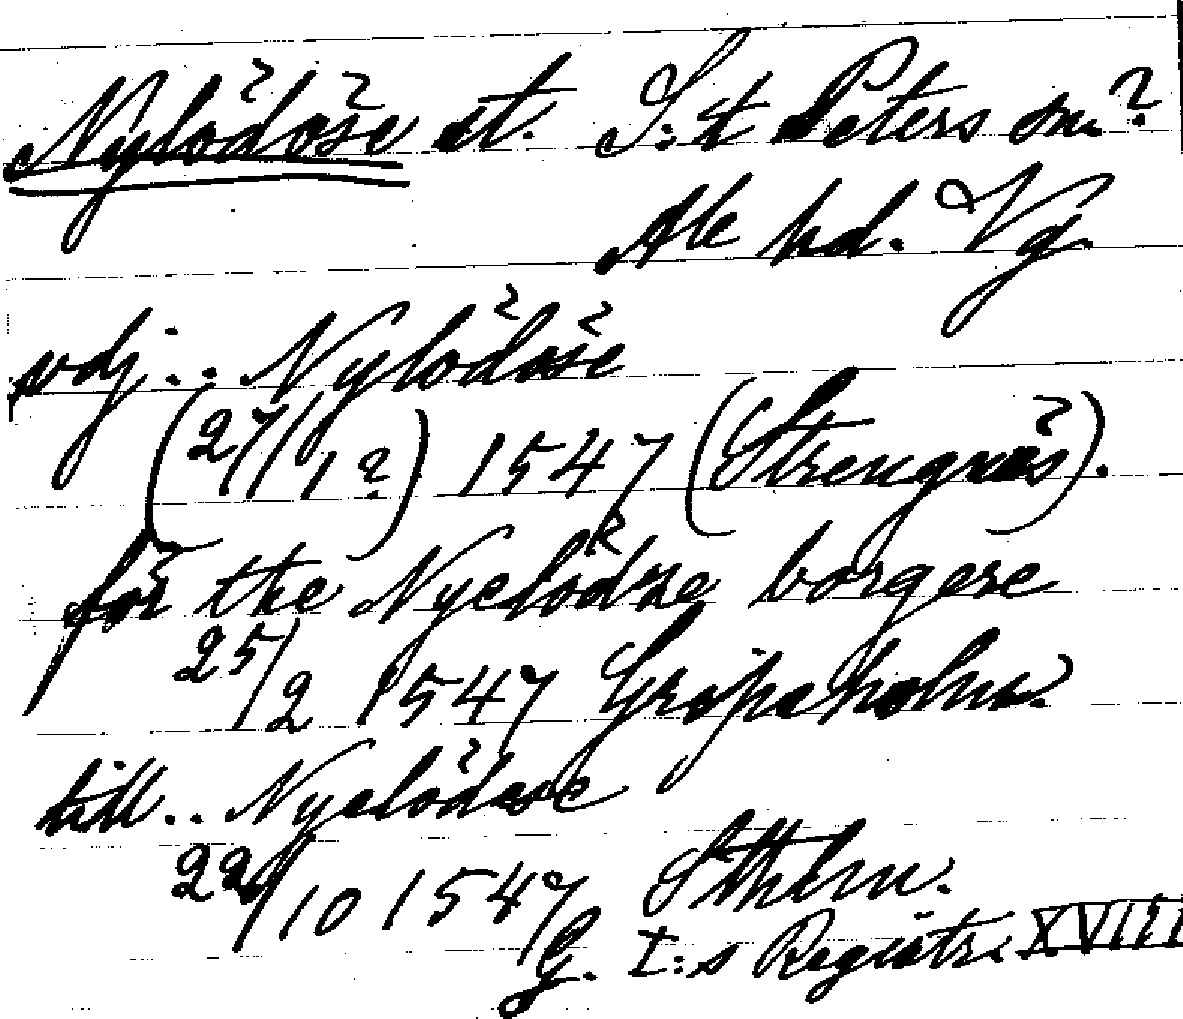 Nylödöse st. S:t Peters sn.?
Ale hd. Vg.
vdj... Nylödöse
(27/1?) 1547 (Strengnäs).
för the Nyelödse borgere
25/2 1547 Gripsholm.
till.. Nyelödese
22/10 1547 Sthlm.
G. I:s Registr. XVIII